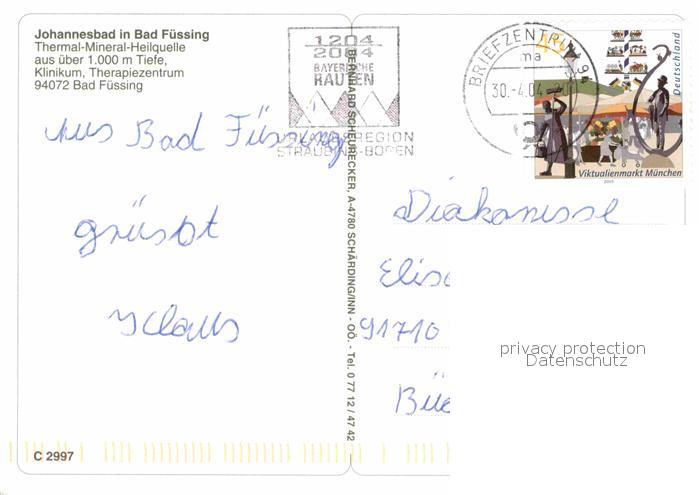 Johannesbad in Bad Füssing
Thermal-Mineral-Heilquelle
aus über 1.000 m Tiefe,
Klinikum, Therapiezentrum
94072 Bad Füssing
1204
2004
BAYERISCHE
RAUTEN
URLAUBSREGION
STRAUBING-BOGEN
BRIEFZENTRUM 9
ma
30.-4.04
45
Deutschland
Viktualienmarkt München
2003
Aus Bad Füssing
grüsst
Klaus
BERNHARD SCHEURECKER, A-4780 SCHÄRDING/INN - OÖ. - Tel. 0 77 12 / 47 42
Diakonisse
Elis
91710
privacy protection
Datenschutz
C 2997